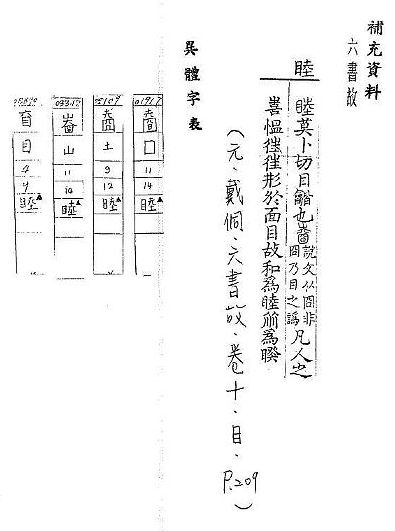 補充資料
六書故
睦
睦莫卜切目
也
說文从囧非
囧乃目之譌
凡人之
喜慍徃徃形於面目故和為睦
為睽
(元.戴侗.六書故.卷十.目.P.209)
異體字表
囗
11
14
睦
土
9
12
睦
山
11
14
睦
目
4
9
睦